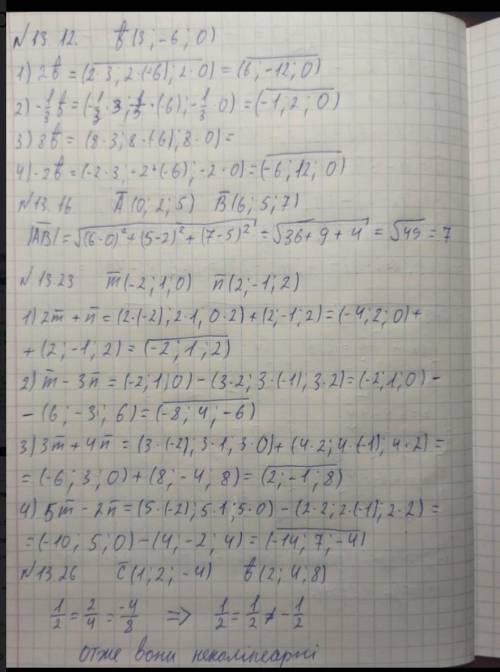 N 13 12. b̅(3; -6; 0)
1) 2b̅ = (2·3; 2·(-6); 2·0) = (6; -12; 0)
2) -1/3 b̅ = (-1/3·3; 1/3·(6); -1/3·0) = (-1; 2; 0)
3) 8b̅ = (8·3; 8·(6); 8·0) =
4) -2b̅ = (-2·3; -2·(-6); -2·0) = (-6; 12; 0)
N 13. 16 A̅(0; 2; 5) B̅(6; 5; 7)
|A̅B̅| = √(6-0)² + (5-2)² + (7-5)² = √36 + 9 + 4 = √49 = 7
N 13.23 m̅(-2; 1; 0) n̅(2; -1; 2)
1) 2m̅ + n̅ = (2·(-2); 2·1, 0·2) + (2; -1; 2) = (-4; 2; 0) +
+ (2; -1; 2) = (-2; 1; 2)
2) m̅ - 3n̅ = (-2; 1; 0) - (3·2; 3·(-1); 3·2) = (-2; 1; 0) -
- (6; -3; 6) = (-8; 4; -6)
3) 3m̅ + 4n̅ = (3·(-2); 3·1, 3·0) + (4·2; 4·(-1); 4·2) =
= (-6; 3; 0) + (8; -4; 8) = (2; -1; 8)
4) 5m̅ - 2n̅ = (5·(-2); 5·1; 5·0) - (2·2; 2·(-1); 2·2) =
= (-10; 5; 0) - (4; -2; 4) = (-14; 7; -4)
N 13.26 c̅(1; 2; -4) b̅(2; 4; 8)
1/2 = 2/4 = -4/8 => 1/2 = 1/2 ≠ -1/2
Отже вони неколінеарні